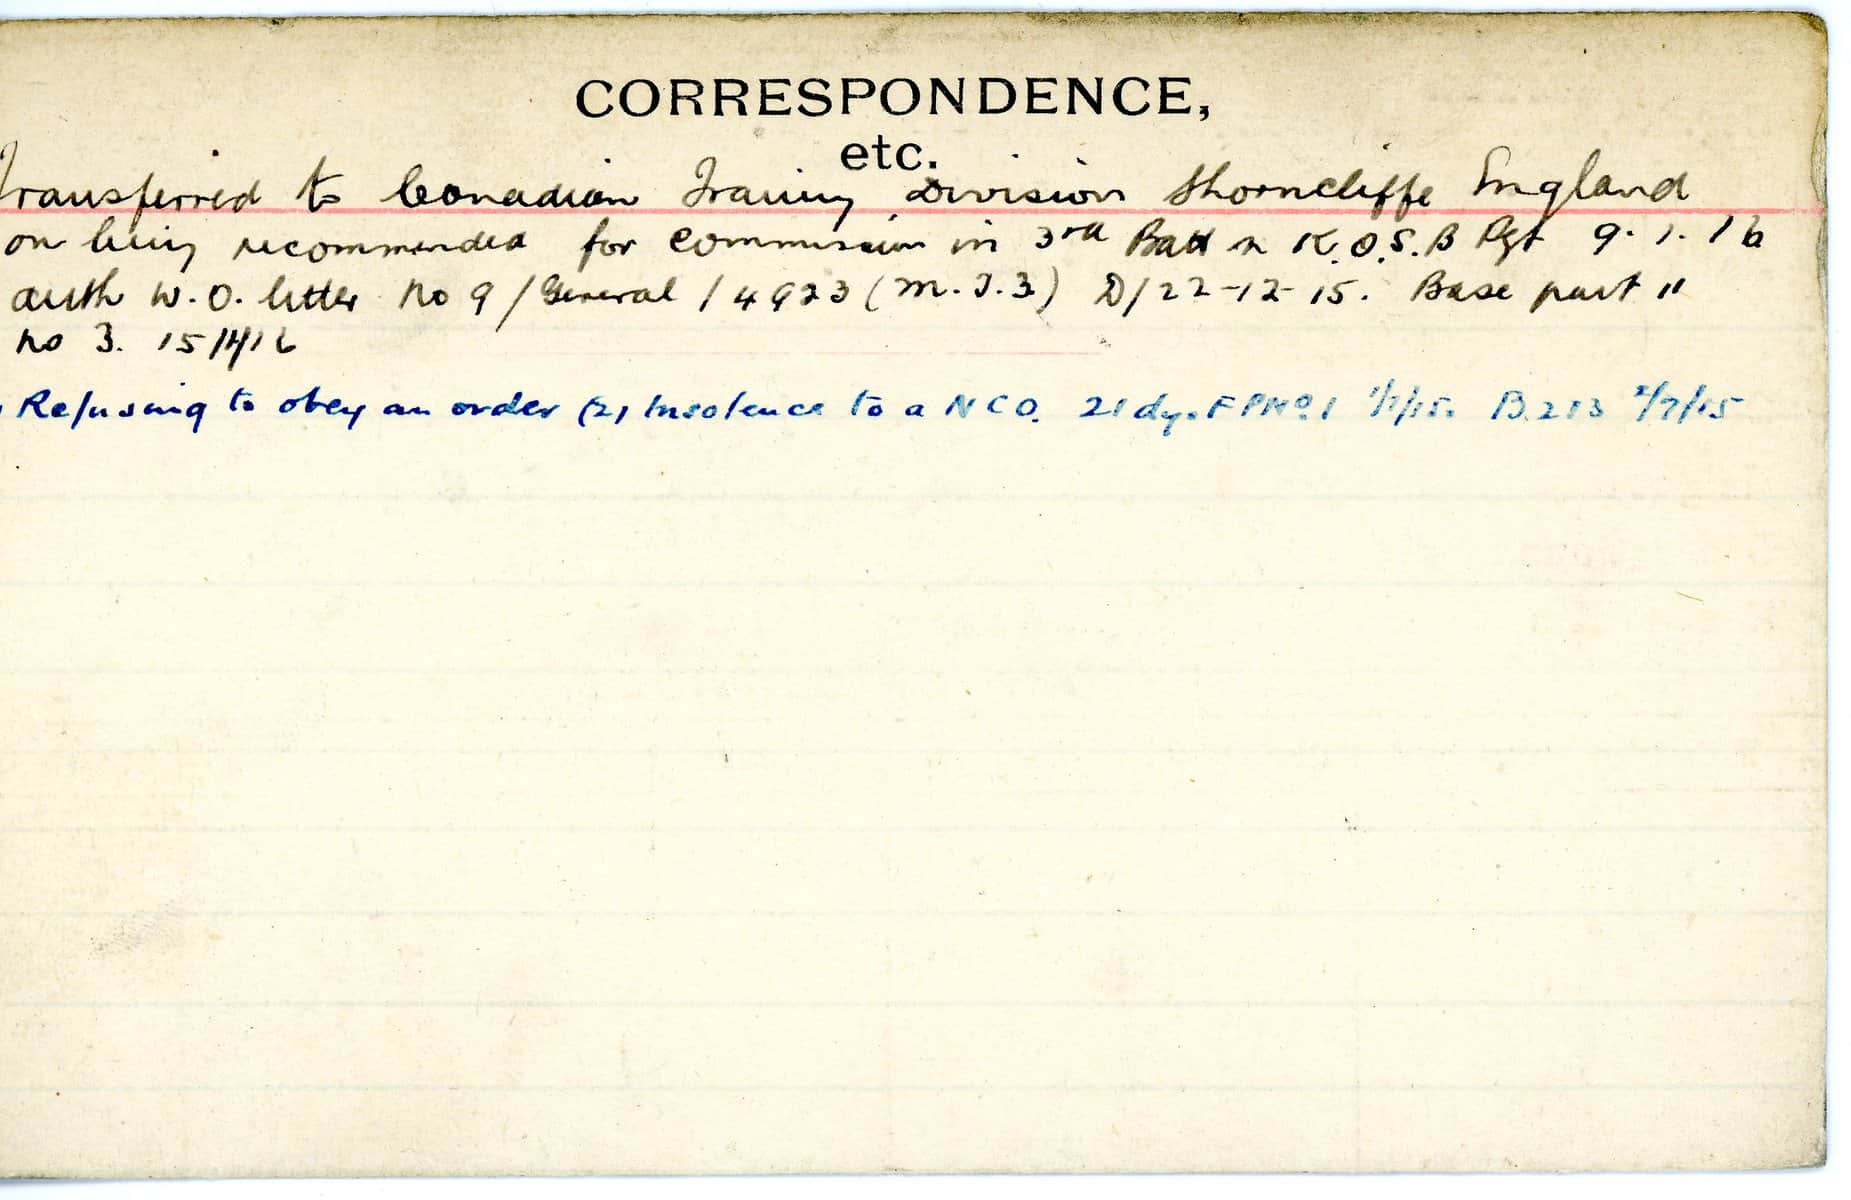 CORRESPONDENCE,
etc.
Transferred to Canadian Training Division Shorncliffe England
on being recommended for commission in 3rd Battn K.O.S.B Rgt 9.1.16
auth W.O. letter No 9/General/4923 (M.T.3) D/22-12-15. Base part 11
No 3. 15/1/16
Refusing to obey an order (2) Insolence to a NCO. 21 dys F P No. 1 1/7/15. B.213 2/7/15